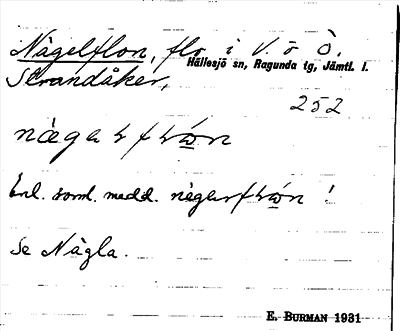 Nägelflon, flo i V. ö Ö.
Hällesjö sn, Ragunda tg, Jämtl. l.
Strandåker,
252
Enl. saml. medd. !
Se Nägla.
E. BURMAN 1931